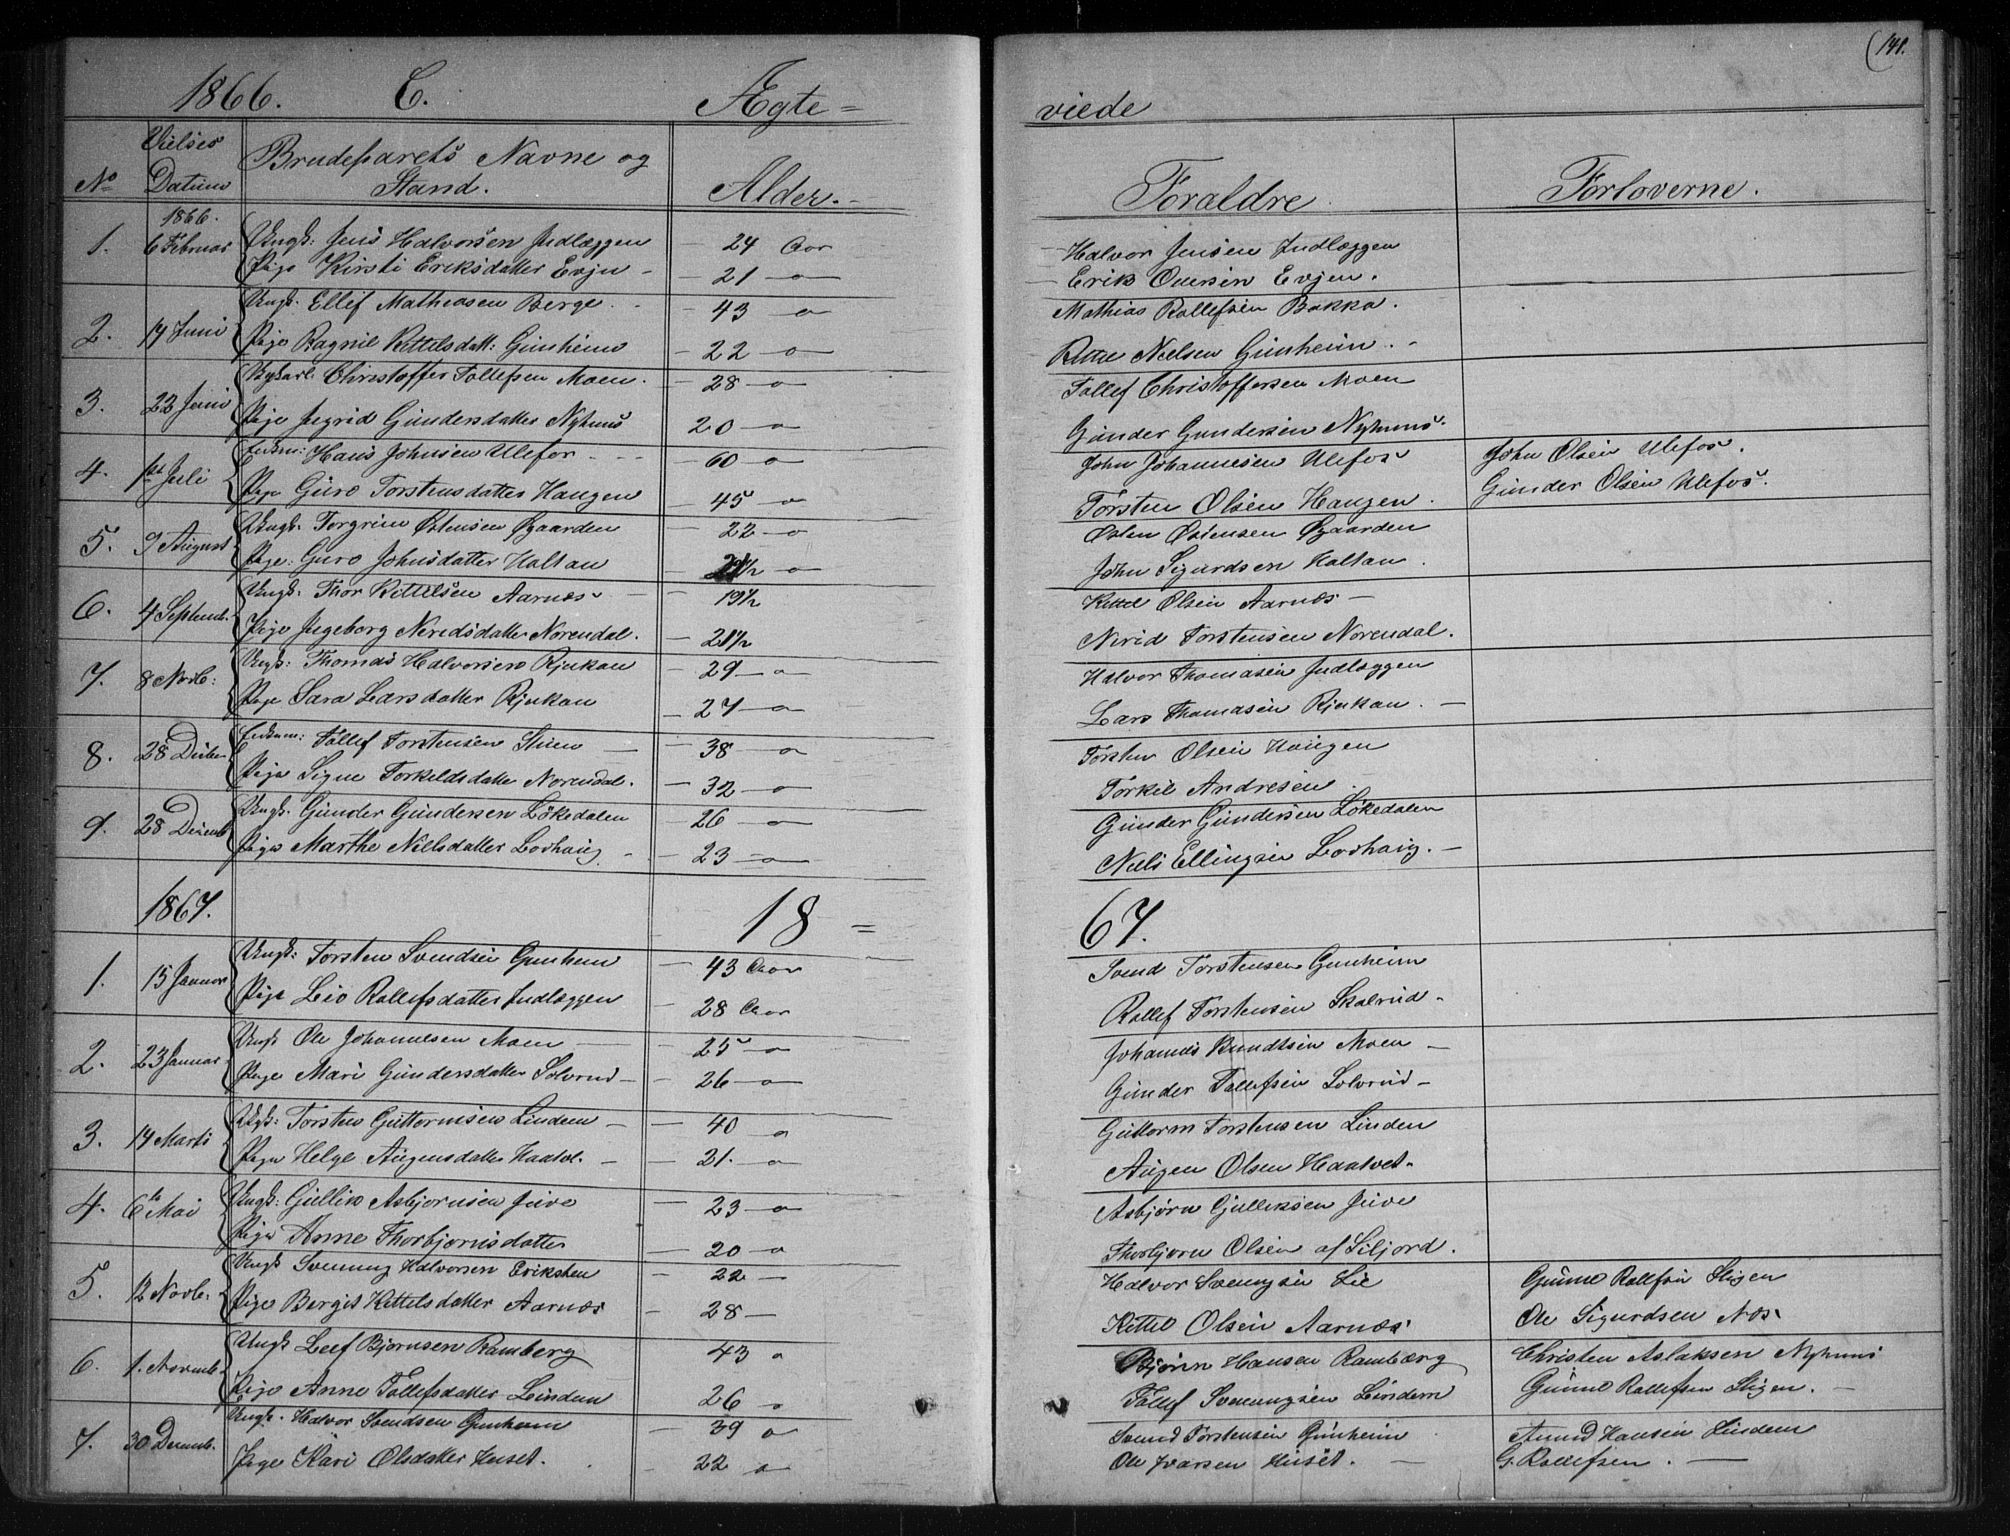 (141.
1866. C. Ægte=
viede
No
Vielses Datum
Brudeparets Navne og Stand.
Alder.
Foræeldre
Forloverne.
1866.
1. 6 Februar Ungk: Jens Halvorsen Indlæggen 24 Aar Halvor Jensen Indlæggen
Pige Kirsti Eriksdatter Evju 21 Erik Evjen.
2. 14 Juni Ungk. Ellif Mathiasen Berge 43 Mathias Rollefsen Bakka.
Pige Ragnil Kittelsdatt: Gunheim 22 Kittil Nielsen Gunheim.
3. 22 Juni Christoffer Tollefsen Moen. 28 Tollef Christoffersen Moen
Pige Ingrid Gundersdatter Nyhuus 20 Gunder Gundersen Nyhuus.
4. 1ste Juli Enkem: Hans Johnsen Ulefos 60 John Johannesen Ulefos John Olsen Ulefos.
Pige Guro Torstensdatter Haugen 45 Torsten Olsen Haugen. Gunder Olsen Ulefos.
5. 9 August Ungk. Torgrim Østensen Øgaarden 22 Østen Østensen Øgaarden
Pige: Guro Johnsdatter Haltan John Sigurdsen Haltan.
6. 4 Septemb. Ungk. Thor Kittilsen Aarnæs 19 1/2 Kittel Olsen Aarnæs
Pige Ingeborg Neridsdatter Norendal. 21 1/2 Nirid Torstensen Norendal.
7. 8 Novb: Ungk: Thomas Halvorsen Rjukan 29 Halvor Thomasen Indlæggen
Pige Sara Larsdatter Rjukan 27 Lars Thomasen Rjukan.
8. 28 Decbr Enkem: Tollef Torstensen Stuen 38 Torsten Olsen Haugen
Pige Signe Torkildsdatter Norendal. 32 Torkil Andresen
9. 28 Decemb Ungk. Gunder Gundersen Løkedalen 26 Gunder Gundersen Løkedalen
Pige Marthe Nielsdatter Lovhaug 23 Niels Ellingsen Lovhaug.
1867. 18 = 67.
1. 15 Januar Ungk: Torsten Svendsen Gunheim 43 Aar Svend Torstensen Gunheim
Pige Liv Rollefsdatter Indlæggen 28 Aar Rollef Torstensen Skalrud
2. 23 Januar Ungk Ole Johannesen Moen 25 Johannes Knudtsen Moen
Pige Mari Gundersdatter Solvrud 26 Gunder Tollefsen Solvrud
3. 14 Marts Ungk: Torsten Guttormsen Lindem 40 Guttorm Torstensen Linden
Pige Helge Augensdatter Haatvet 21. Augen Olsen Haatvet.
4. 6te Mai Ungk: Gullik Asbjørnsen Juve 23 Asbjørn Gulleksen Juve
Pige Anne Thorbjørnsdatter 20 Thorbjørn Olsen af Siljord.
5. 12 Novb: Ungk Svenung Halvorsen Erikstein 22 Halvor Svenungsen Lie Gunne Rollefsen Stigen
Pige Bergit Kittelsdatter Aarnæs 28 Kittel Olsen Aarnæs Ole Sigurdsen Næs
6. 1. Novemb. Ungk Leif Bjørnsen Ramberg 43 Bjørn Hansen Ramberg Christen Aslaksen Nyhuus
Pige Anne Tollefsdatter Lindem 26 Tollef Svenungsen Lindem Gunne Rollefsen Stigen.
7. 30 Decemb. Ungk. Halvor Svendsen Gunheim 39 Svend Torstensen Gunheim Amund Hansen Lindem
Pige Kari Olsdatter Huset. 22 Ole Ivarsen Huset. G. Rollefsen.